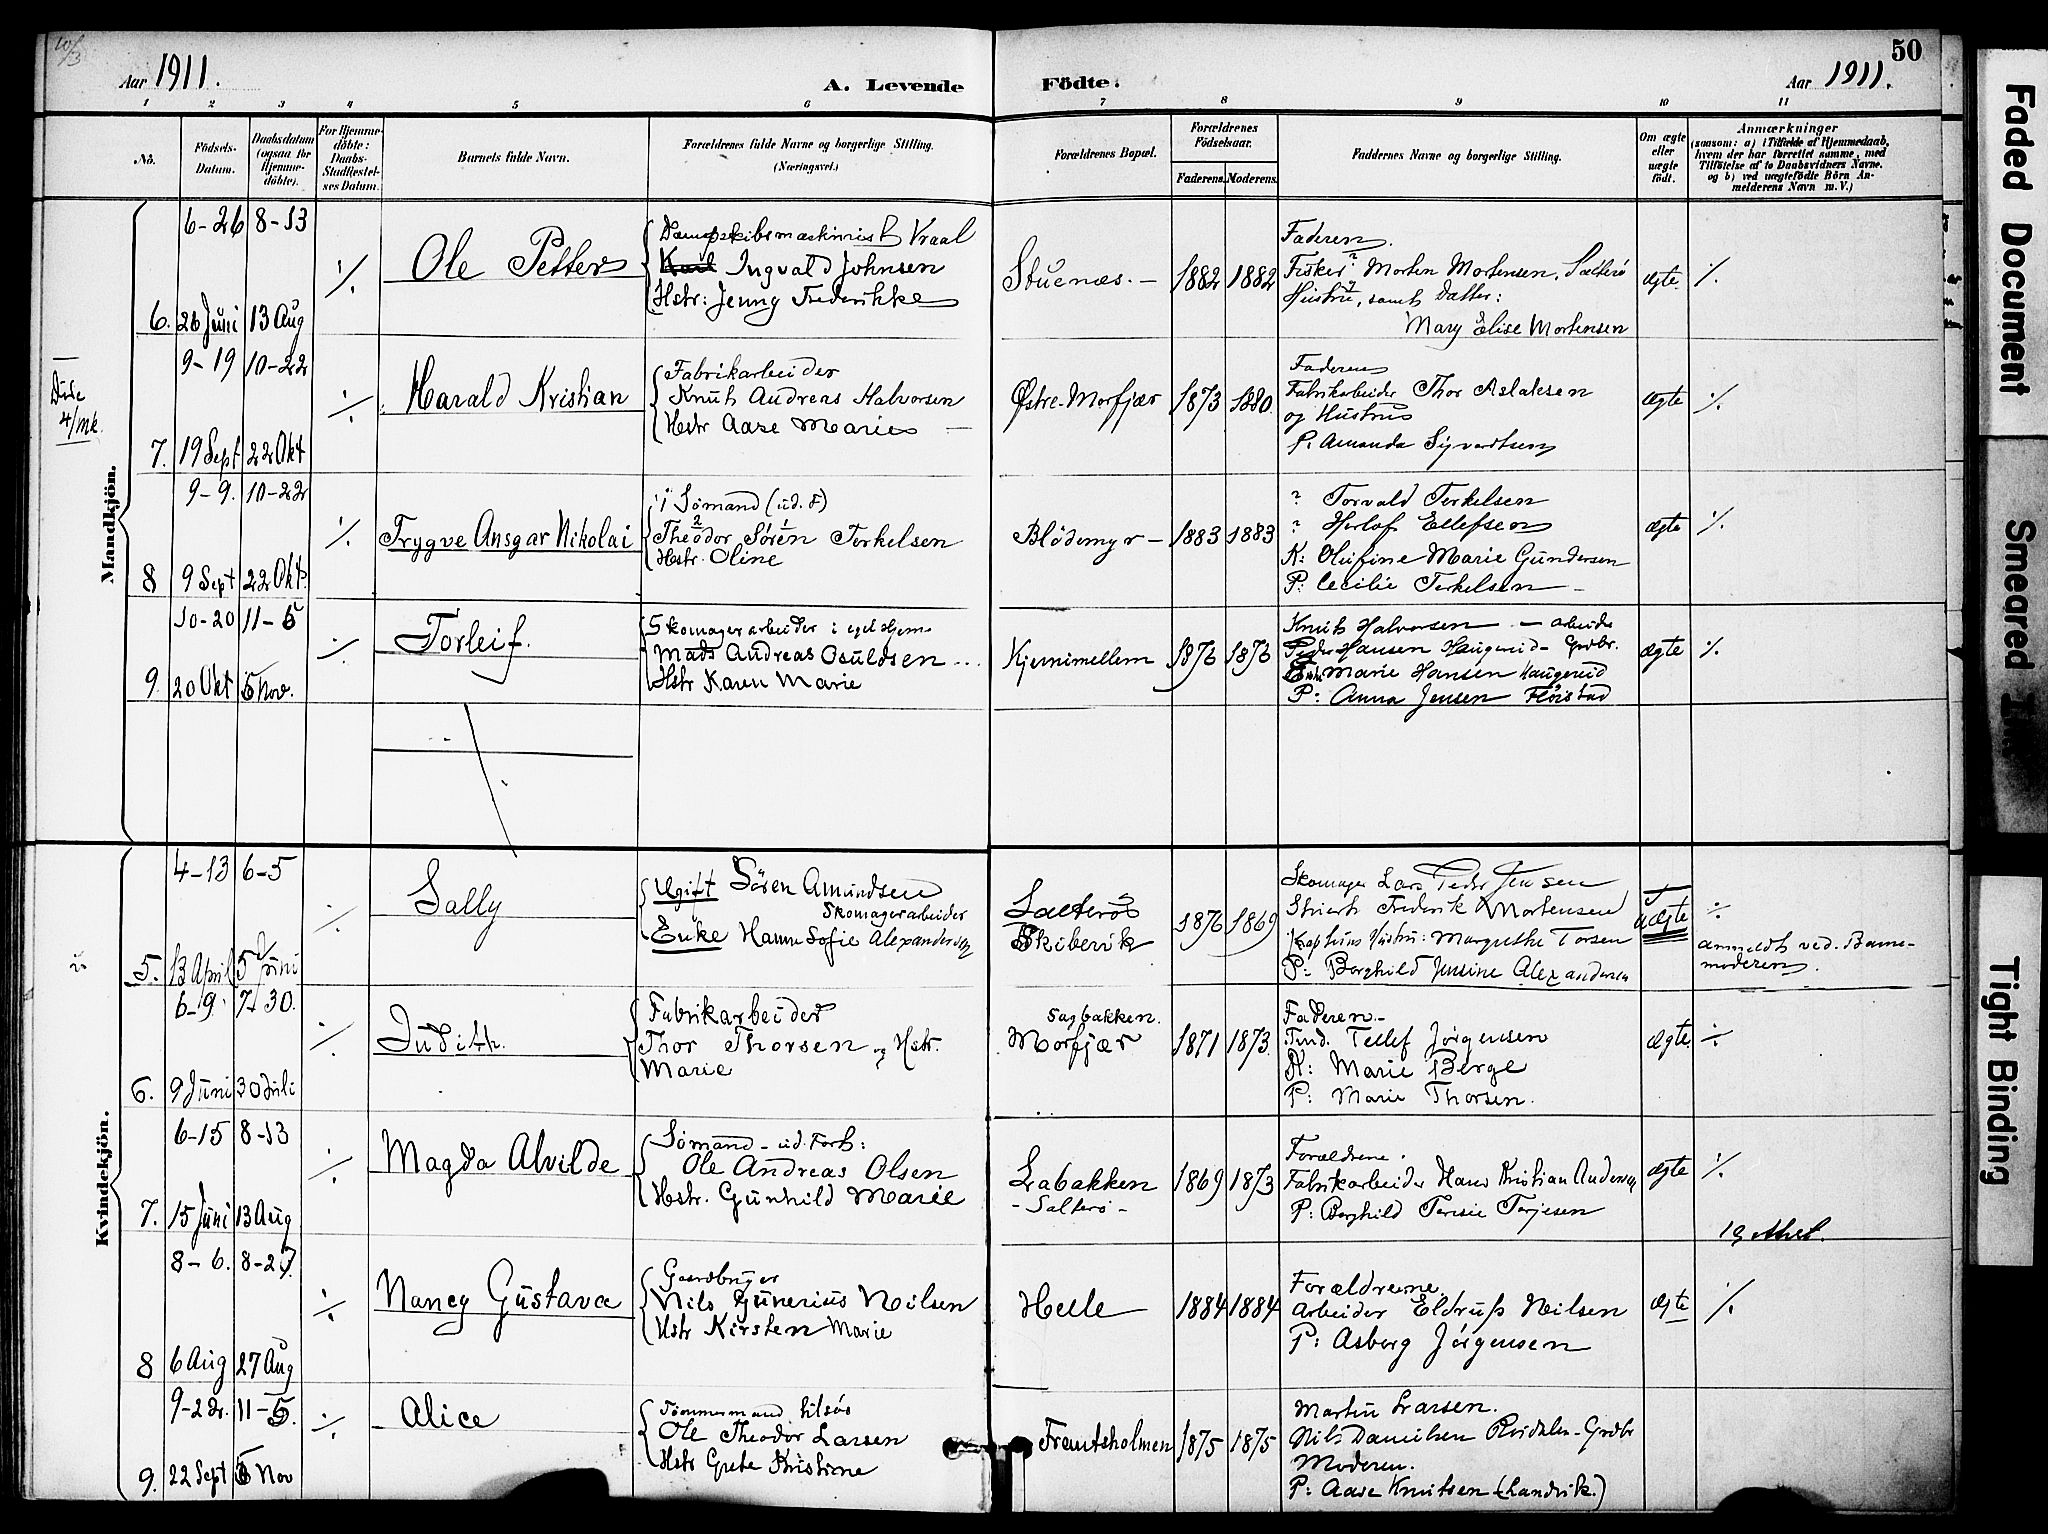 10/3
Aar 1911.
A. Levende Födte.
Aar 1911.
50
1 2 3 4 5 6 7 8 9 10 11
No.
Födsels-Datum.
Daabsdatum (ogsaa for Hjemme-döbte).
For Hjemme-döbte: Daabs-Stadfæstel-ses Datum.
Barnets fulde Navn.
Forældrenes fulde Navne og borgerlige Stilling. (Næringsvei.)
Forældrenes Bopæl.
Forældrenes Födselsaar.
Faderens. Moderens.
Faddernes Navne og borgerlige Stilling.
Om ægte eller uægte födt.
Anmærkninger
(saasom: a) i Tilfælde af Hjemmedaab, hvem der har forrettet samme, med Tilföielse af to Daabsvidners Navne. og b) ved uægtefödte Börn Anmelderens Navn m. V.)
Mandkjön.
6-26 8-13
6. 26 Juni 13 Aug
÷
Ole Petter
Dampskibsmaskinist Vraal
Karl Ingvald Johnsen
Hstr: Jenny Frederikke
Stuenæs.-
1882 1882
Faderen.
Fisker Morten Mortensen, Salterö
Hustru, samt Datter:
Mary Elise Mortensen
ægte
÷
Døde
4/mk.
9-19 10-22
7. 19 Sept 22 Okt
÷
Harald Kristian
Fabrikarbeider
Knut Andreas Halvorsen
Hstr Aase Marie
Østre-Morfjær
1873 1880.
Faderen
Fabrikarbeider Thor Aslaksen
og Hustru
P. Amanda Sigvartsen
ægte
÷
9-9. 10-22
8 9 Sept 22 Okt.
÷
Trygve Ansgar Nikolai
Sømand (ud. F)
Theodor Sören Terkelsen
Hstr. Oline
Blödemyr-
1883 1883
? Torvald Terkelsen
? Herlof Ellefsen
K: Olufine Marie Gundersen
P: Cecilie Terkelsen -
ægte
÷
10-20 11-5
9. 20 Okt 5 Nov.
÷
Torleif.
Skomagerarbeider i eget Hjem
Mads Andreas Osuldsen
Hstr Karen Marie
Kjernimellem
1876 1876
Knut Halvorsen - arbeider
Peder Hansen Haugerud - Grdbr.
Marie Hansen Haugerud
P: Anna Jensen Fløistad
ægte
÷
Kvindekjön.
4-13 6-5
5. 13 April 5 Juni
÷
Sally
Ugift Sören Amundsen
Skomagerarbeider
Enke Hanne Sofie Alexandersen
Salterö
Skibervik
1876 1869
Skomager Lars Peder Jensen
Frederik Mortensen
Kaptens Hustru: Margrethe Torsen
P: Borghild Jensine Alexandersen
Uægte
÷
anmeldt ved Barne-
moderen.
6-9. 7-30.
6. 9 Juni 30 Juli
÷
Judith.
Fabrikarbeider
Thor Thorsen og Hstr.
Marie
Sagbakken.
Morfjær
1871 1873.
Faderen-
Tellef Jørgensen
K: Marie Berge
P: Marie Thorsen.
ægte.
÷
6-15 8-13
7. 15 Juni 13 Aug
÷
Magda Alvilde
Sømand - ud. Forh:
Ole Andreas Olsen
Hstr. Gunhild Marie
Labakken
- Salterö -
1869 1873
Forældrene.
Fabrikarbeider Hans Kristian Andersen
P: Borghild Terjesen
ægte
÷
8-6. 8-27.
8 6 Aug 27 Aug
÷
Nancy Gustava
Gaardbruger
Nils Gunerius Nilsen
Hstr Kirsten Marie
Helle
1884 1884
Forældrene.
Arbeider Eldrup Nilsen
P: Asborg Jörgensen
ægte
÷
9-22. 11-5
9. 22 Sept 5 Nov
÷
Alice
Tömmermand tilsös
Ole Theodor Larsen
Hstr Grete Kristine
Frentsholmen
1875 1875
Martin Larsen.
Nils Danielsen Grdbr
Moderen.
P: Aase Knutsen (Landvik.)
Faded Document
Smeared Ink
Tight Binding